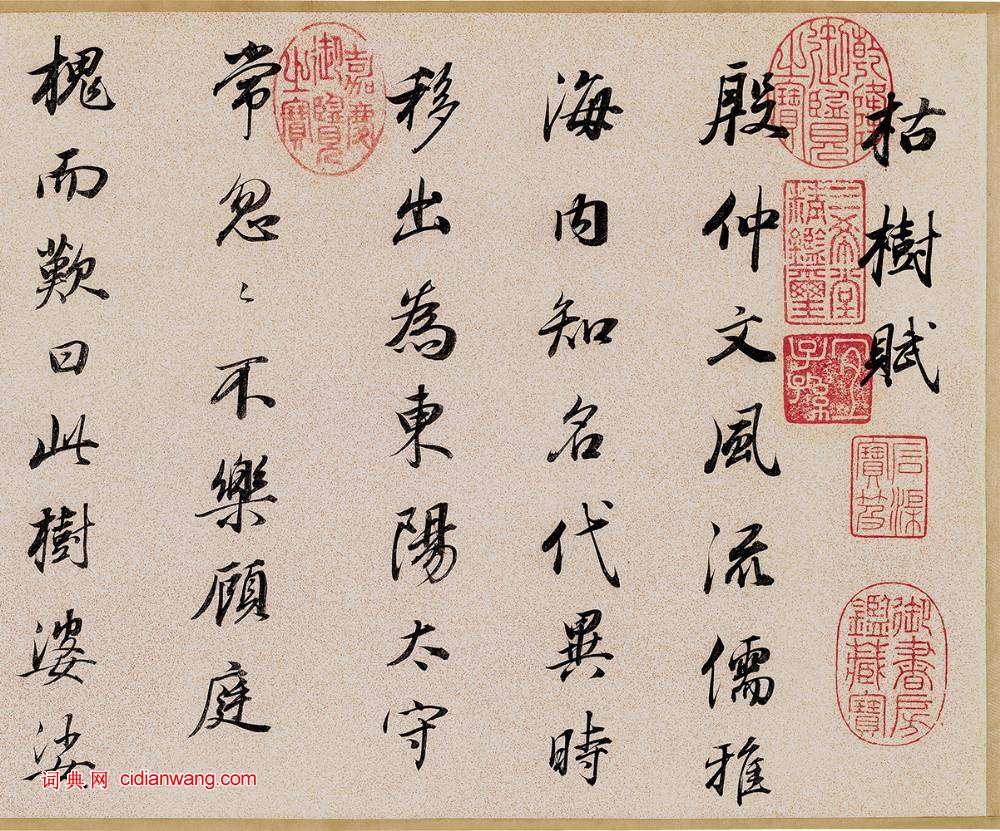 枯樹賦
乾隆御覽之寶
三希堂精鑑璽
宜子孫
石渠寶笈
御書房鑑藏寶
殷仲文風流儒雅
海内知名代異時
移出為東陽太守
嘉慶御覽之寶
常忽〻不樂顧庭
槐而歎曰此樹婆娑
词典网 cidianwang.com